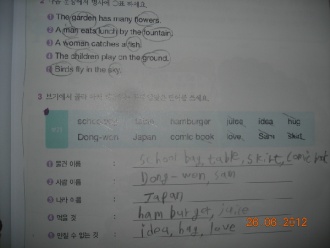 The garden has many flowers.
A man eats lunch by the fountain.
A woman catches a fish.
The children play on the ground.
Birds fly in the sky.
3 보기에서 골라
보기
hamburger juice idea hug
Dong-won Japan comic book love Sam
물건 이름 : school bag, table, skirt, comic book
사람 이름 : Dong-won, Sam
나라 이름 : Japan
먹을 것 : hamburger, juice
만질 수 없는 것 : idea, hug, love
26 06 2012